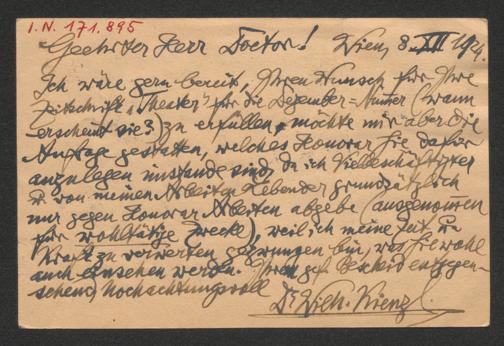 I.N. 171.895
Geehrter Herr Doctor! Wien, 8. XII 1924.
Ich wäre gern bereit, Ihren Wunsch für Ihre
Zeitschrift „Theater" für die Dezember-Numer (wann
erscheint sie?) zu erfüllen, möchte mir aber die
Anfrage gestatten, welches Honorar Sie dafür
anzulegen imstande sind, da ich Vielbeschäftigter
u. von meinen Arbeiten Lebender grundsätzlich
nur gegen Honorar Arbeiten abgebe (ausgenomen
für wohltätige Zwecke), weil ich meine Zeit u.
Kraft zu verwerten gezwungen bin, was Sie wohl
auch einsehen werden. Ihren gef. Bescheid entgegen-
sehend, hochachtungsvoll
Dr. Wilh. Kienzl.